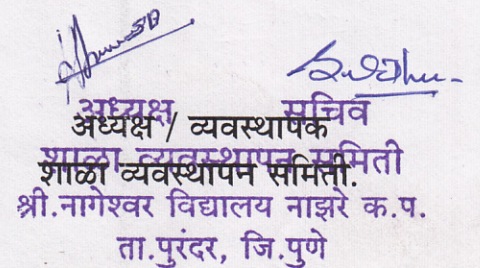 अध्यक्ष सचिव
अध्यक्ष / व्यवस्थापक
शाळा व्यवस्थापन समिती
शाळा व्यवस्थापन समिती.
श्री.नागेश्वर विद्यालय नाझरे क.प.
ता.पुरंदर, जि.पुणे